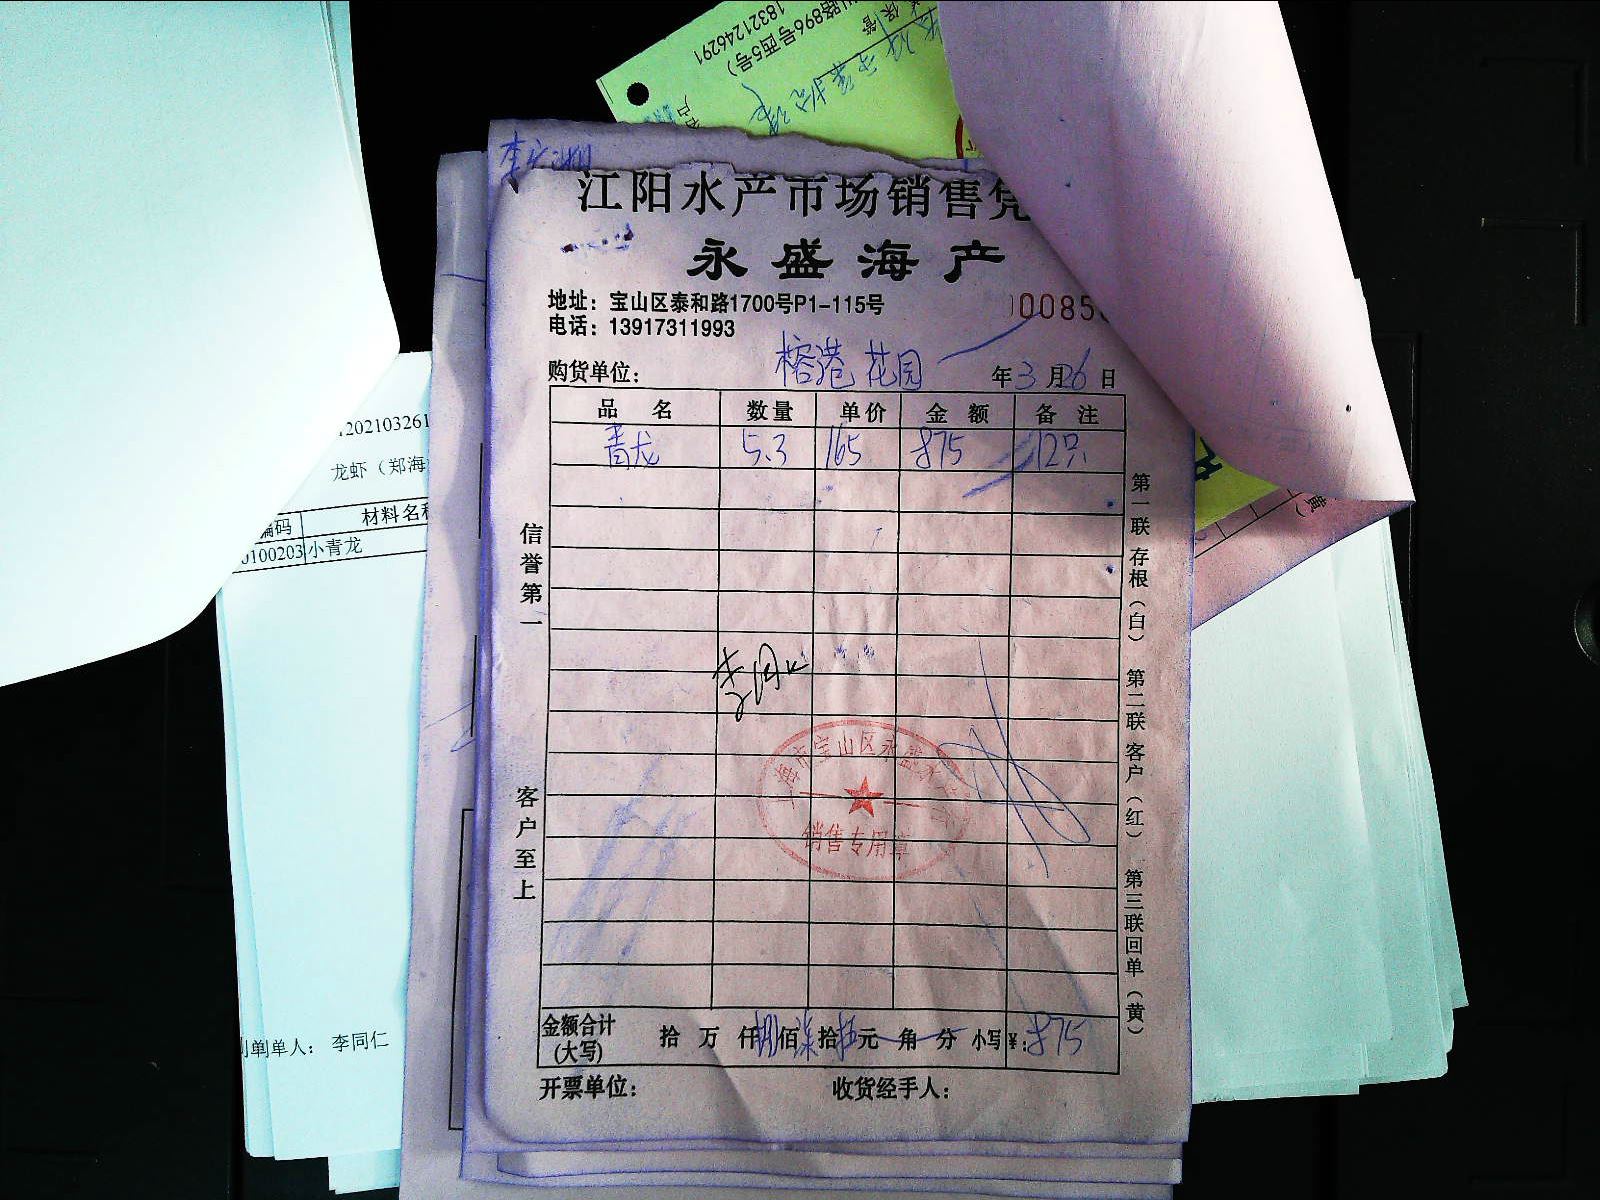 18321246291
路896号西5号）
江阳水产市场销售凭
永盛海产
地址：宝山区泰和路1700号P1-115号
电话：13917311993
0085
购货单位：榕港花园 年3月26日
品名 数量 单价 金额 备注
青龙 5.3 165 875 12只
信誉第一
客户至上
第一联 存根（白） 第二联 客户（红） 第三联 回单（黄）
销售专用章
金额合计（大写） 拾 万 仟 捌佰柒拾伍元 角 分 小写¥：875
开票单位： 收货经手人：
1202103261
龙虾（郑海
编码 材料名称
0100203 小青龙
制单人： 李同仁